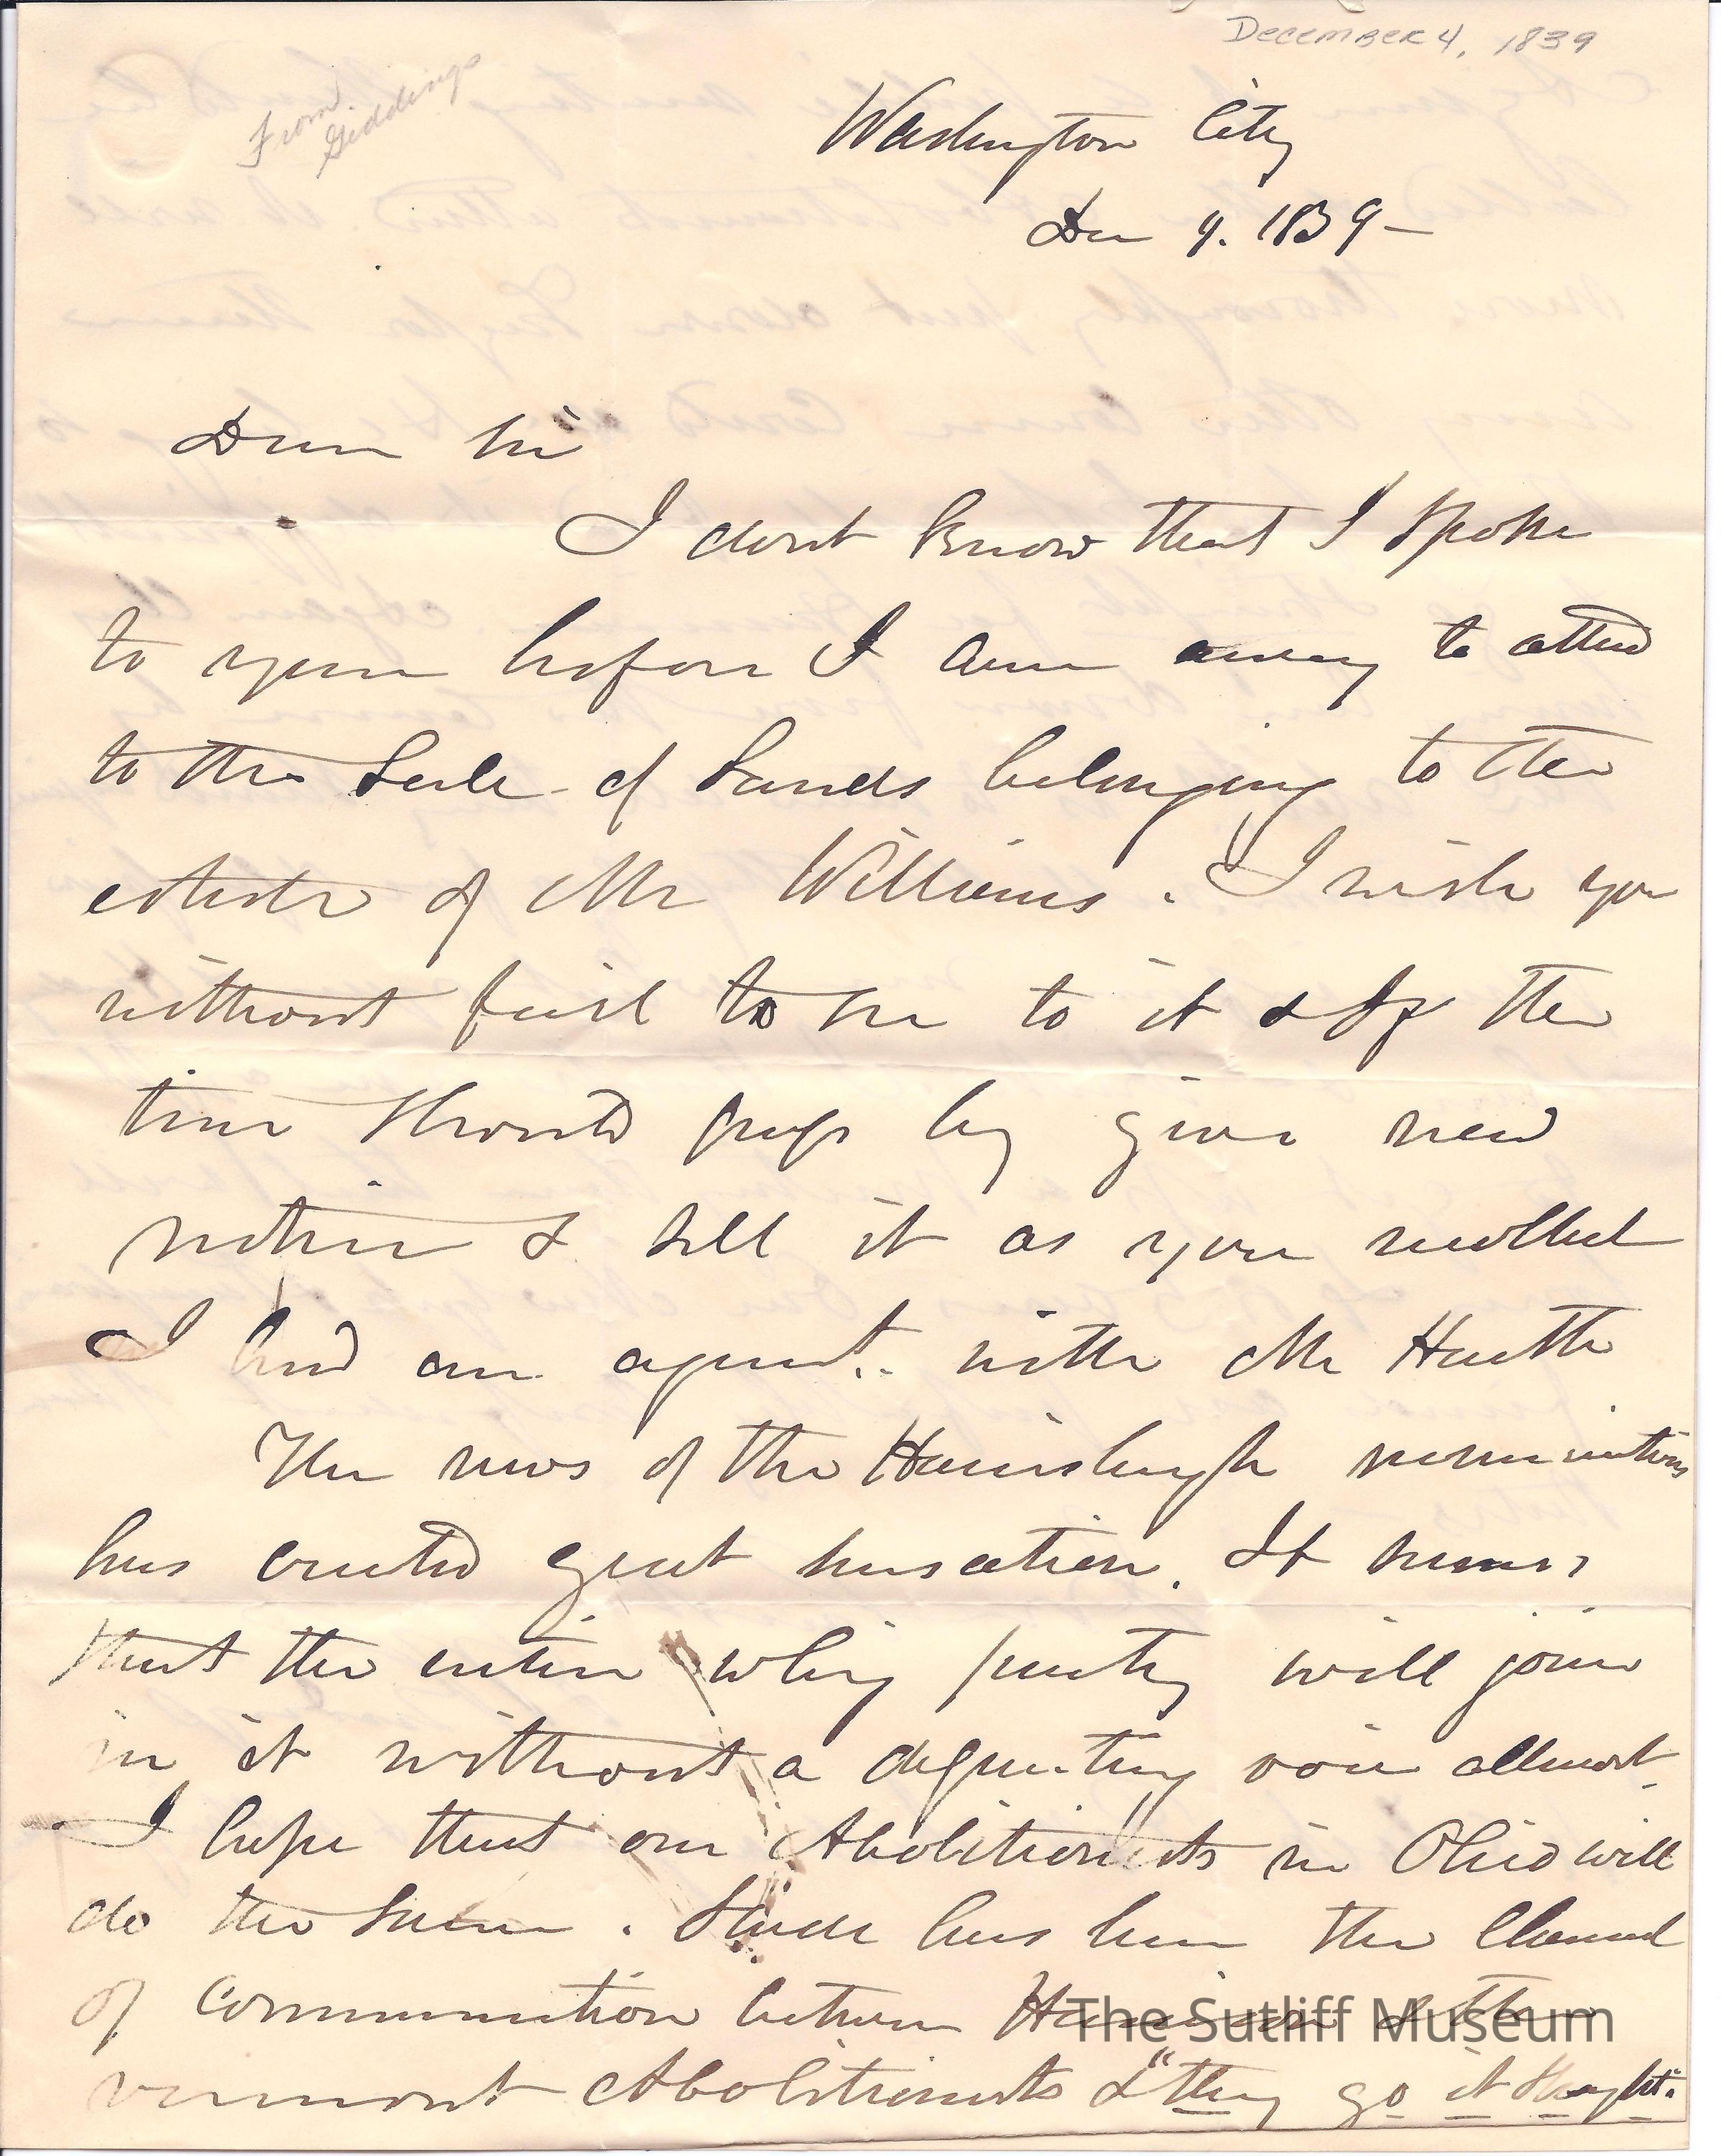 December 4, 1839
From Giddings
Washington City
Dec 9. 1839–
Dear Sir
I dont know that I spoke
to you before I came away to attend
to the Sale of Lands belonging to the
estate of Mr Williams. I wish you
without fail to see to it & if the
time should pass by give new
notice & sell it as you recollect
I had an agent. with Mr Heath
The news of the Harrisburgh nominations
has created great sensation. It seems
that the entire whig party will join
in it without a desenting voice allmost
I hope that our Abolitionists in Ohio will
do the same. Slade has been the Channel
of communication between Harrison & the
vermont Abolitionists & "they go it
The Sutliff Museum